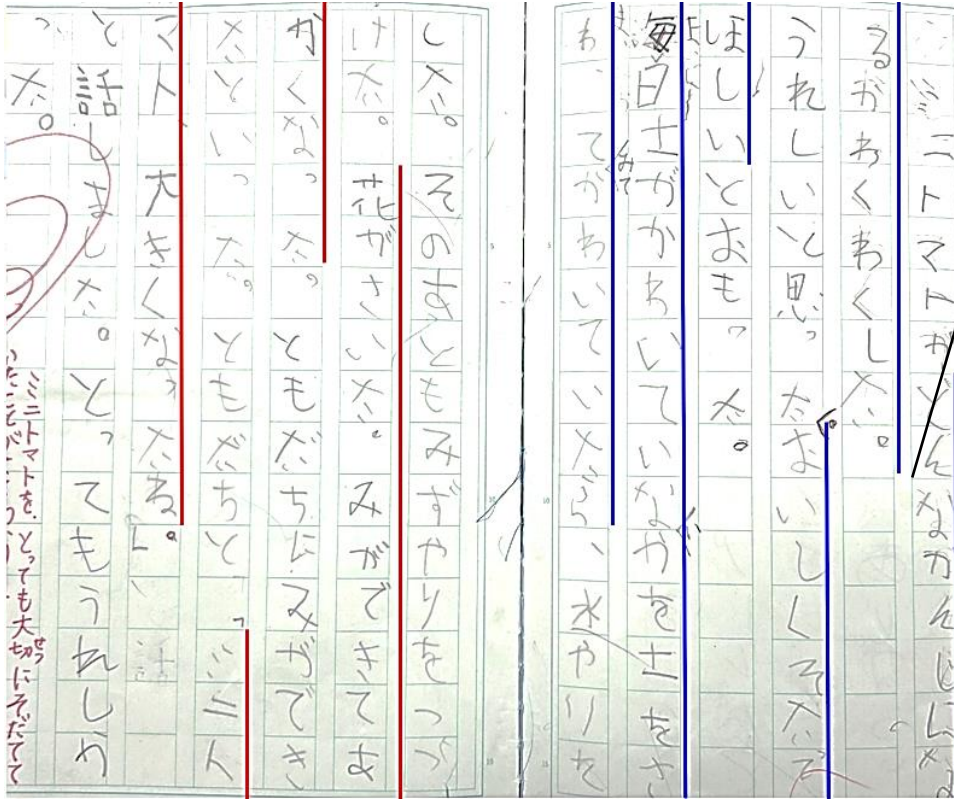 ミニトマトがどんなかんじにな
るかわくわくした。
うれしいと思った。おいしくそだって
ほしいとおもった。
毎日土がかわいていないかを土をさ
わってかわいていたら、水やりを
みて
した。そのあともみずやりをつづ
けた。花がさいた。みができてあ
かくなった。ともだちにみができ
たといった。ともだちと「ミニト
マト大きくなったね。」
と話しました。とってもうれしか
った。
ミニトマトを、とっても大切にそだてて